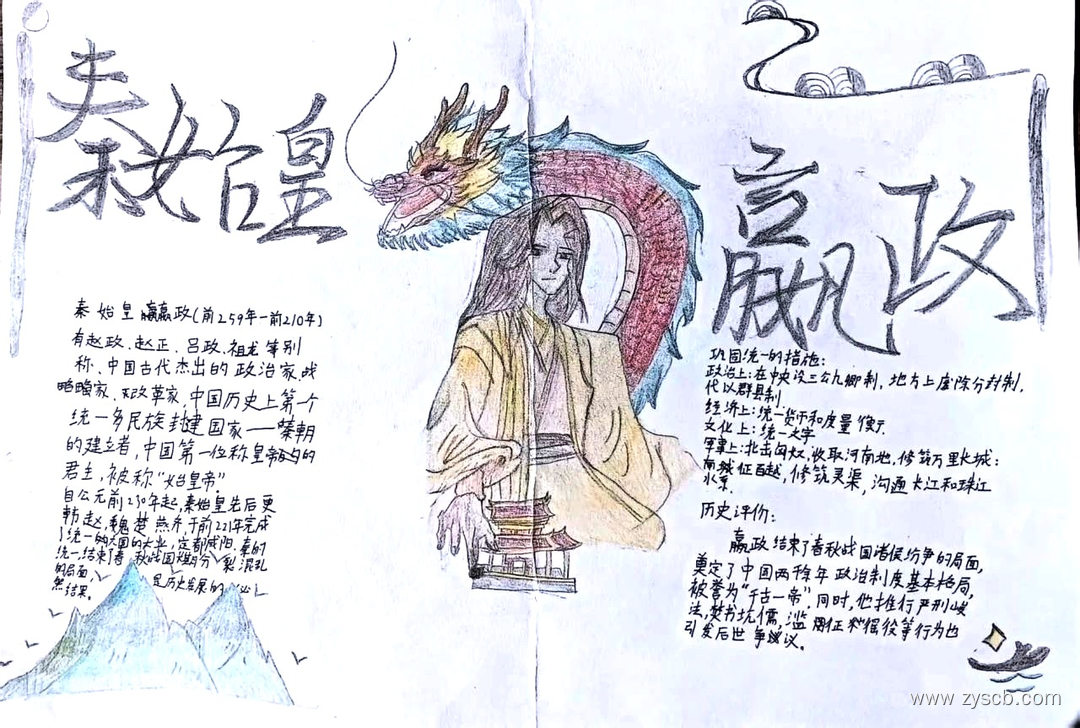 秦始皇
嬴政
秦始皇嬴政(前259年一前210年)
有赵政、赵正、吕政、祖龙等别
称、中国古代杰出的政治家、战
略家、改革家,中国历史上第一个
统一多民族封建国家——秦朝
的建立者,中国第一位称皇帝的
君主,被称“始皇帝”
自公元前230年起,秦始皇先后更
韩 赵、魏 楚 燕 齐 于前221年完成
了统一的大业,定都咸阳,秦的
统一,结束了春秋战国 分裂混乱
的局面, 是历史发展的 必
然结果。
巩固统一的措施:
政治上:在中央设三公九卿制,地方上废除分封制,
代以群县制
经济上:统一货币和度量衡
文化上:统一文字
军事上:北击匈奴,收取河南地,修筑万里长城;
南 征百越,修筑灵渠,沟通长江和珠江
水系.
历史评价:
嬴政结束了春秋战国诸侯纷争的局面,
奠定了中国两千年政治制度基本格局,
被誉为“千古一帝”.同时,他推行严刑峻
法,焚书坑儒,滥用征 徭役等行为也
引发后世争议。
www.zyscb.com